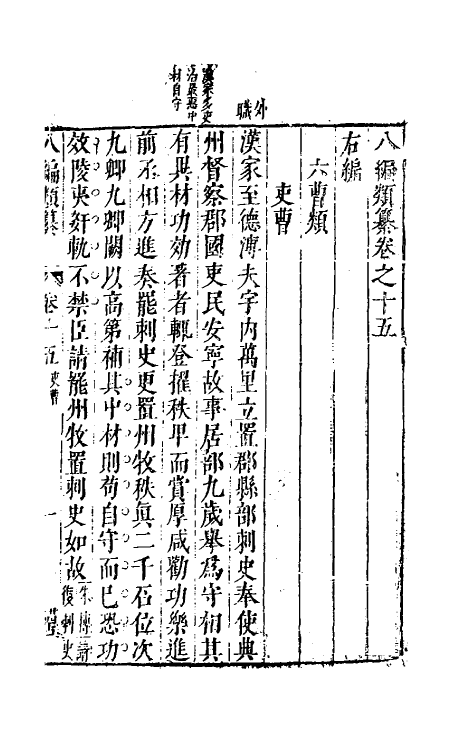 八編類纂卷之十五
右編
六曹類
吏曹
外職
漢家至德溥大宇內萬里立置郡縣部刺史奉使典
州督察郡國吏民安寧故事居部九歲舉爲守相其
有異材功効著者輒登擢秩卑而賞厚咸勸功樂進
前丞相方進奏罷刺史更置州牧秩眞二千石位次
九卿九卿闕以高第補其中材則苟自守而已恐功
效陵夷奸軌不禁臣請罷州牧置刺史如故
朱博請
復刺史
八編類纂
卷十五
吏曹
一